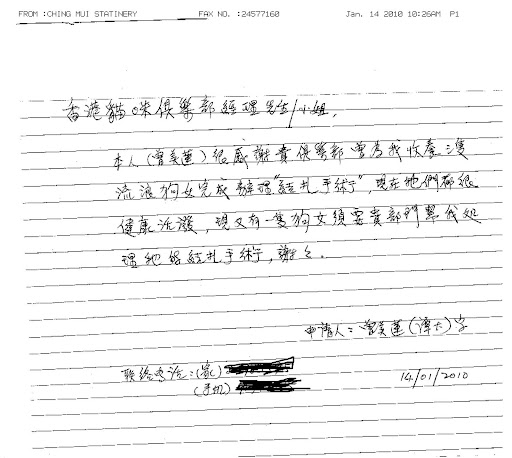 FROM :CHING MUI STATINERY FAX NO. :24577160 Jan. 14 2010 10:26AM P1
香港貓咪俱樂部經理先生/小姐,
本人(曾美蓮)很感謝貴俱樂部曾為我收養三隻
流浪狗女完成辦理"結扎手術",現在牠們都很
健康活潑,現又有一隻狗女須要貴部門幫我處
理牠的結扎手術,謝謝.
申請人:曾美蓮(譚太)字
聯絡電話:(家)
(手机) 14/01/2010